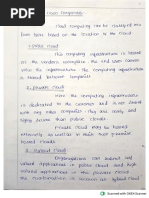 Cloud Computing
Cloud computing can be classified into
four types based on the location to the cloud
1. Public Cloud
The computing infrastructure is hosted
on the vendors premises. The end user cannot
the computing infrastructure
is shared between companies
2. Private Cloud
Here the computing infrastructure
is dedicated to the customer and is not shared
with any other companies. They are costly and
highly secure than public clouds.
Private cloud may be hosted
externally as well as in their own premises
hosted clouds
3. Hybrid Cloud
Organizations can host
critical applications in private cloud and less
applications in the public cloud
The combination is known as Hybrid Cloud
Scanned with OKEN Scanner